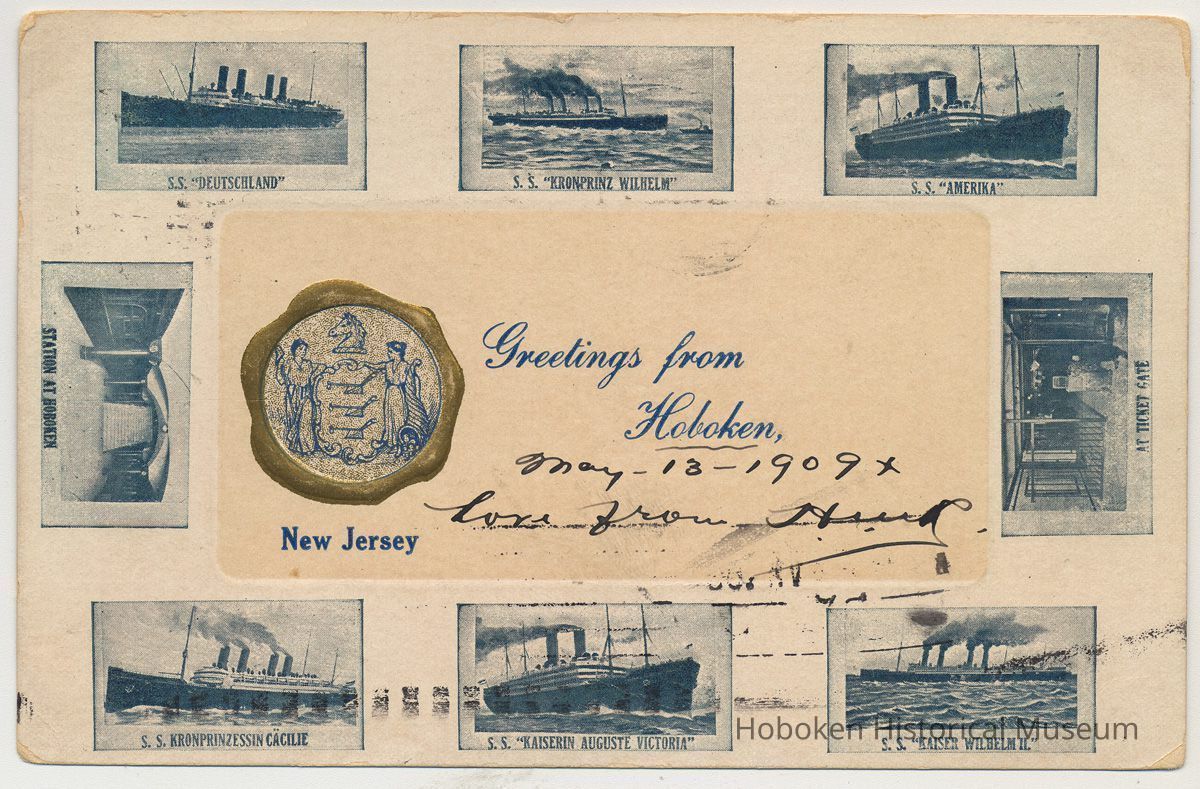 S.S. "DEUTSCHLAND"
S. S. "KRONPRINZ WILHELM"
S. S. "AMERIKA"
STATION AT HOBOKEN
Greetings from
Hoboken,
May-13-1909 x
Love from
New Jersey
AT TICKET GATE
S. S. KRONPRINZESSIN CÄCILIE
S. S. "KAISERIN AUGUSTE VICTORIA"
S. S. "KAISER WILHELM II."
Hoboken Historical Museum